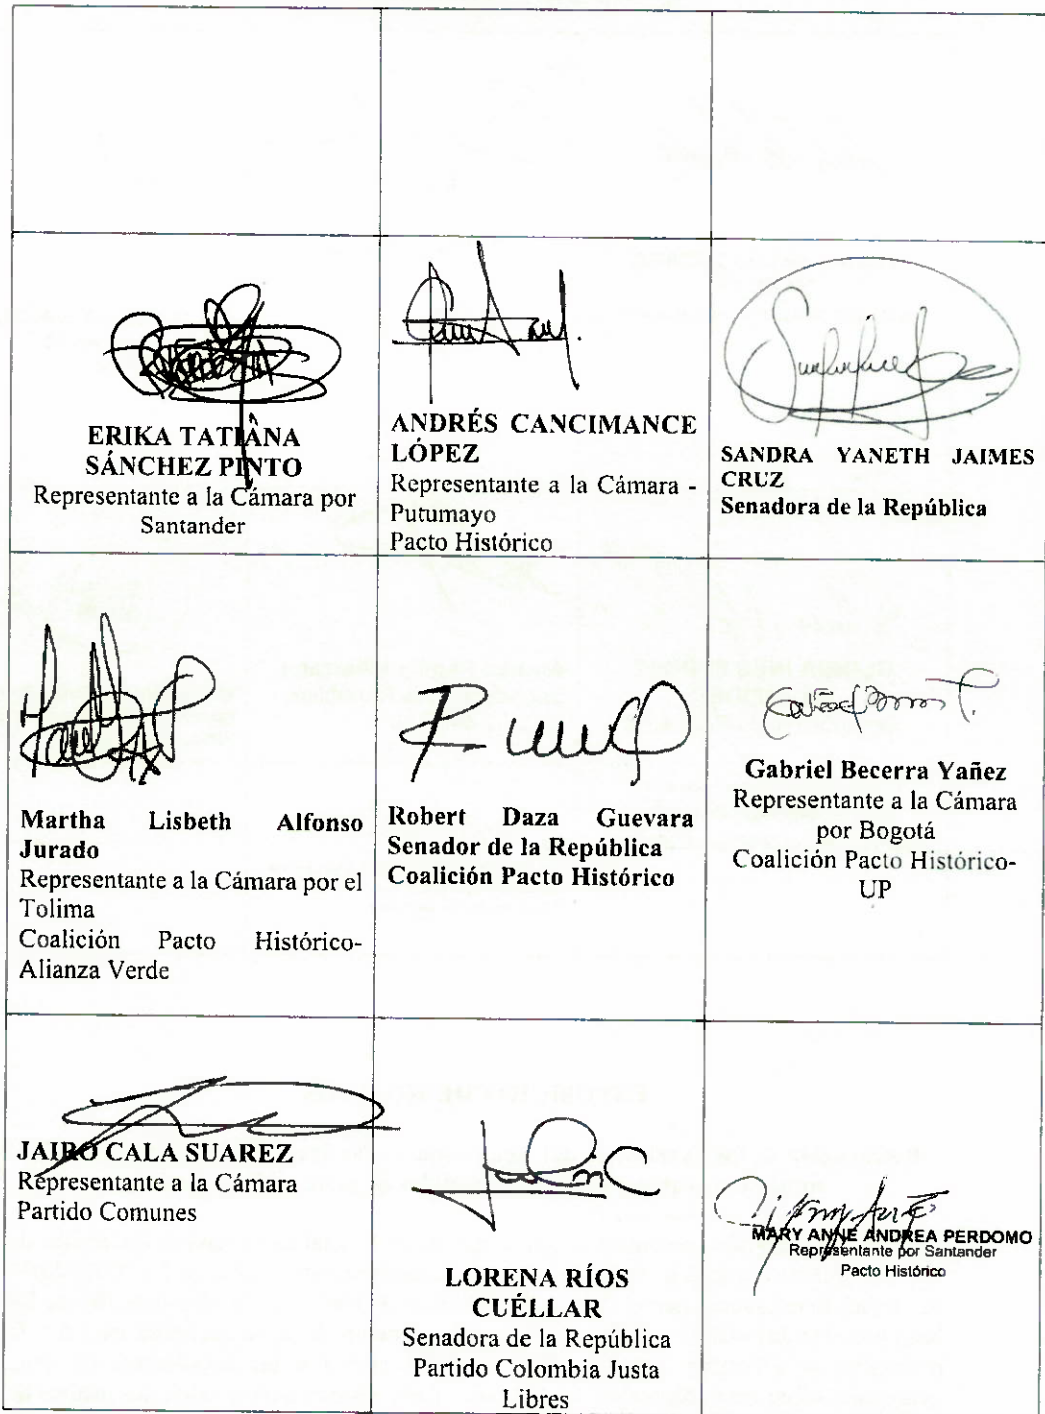 ERIKA TATIANA
SÁNCHEZ PINTO
Representante a la Cámara por
Santander
ANDRÉS CANCIMANCE
LÓPEZ
Representante a la Cámara -
Putumayo
Pacto Histórico
SANDRA YANETH JAIMES
CRUZ
Senadora de la República
Martha Lisbeth Alfonso
Jurado
Representante a la Cámara por el
Tolima
Coalición Pacto Histórico-
Alianza Verde
Robert Daza Guevara
Senador de la República
Coalición Pacto Histórico
Gabriel Becerra Yañez
Representante a la Cámara
por Bogotá
Coalición Pacto Histórico-
UP
JAIRO CALA SUAREZ
Representante a la Cámara
Partido Comunes
LORENA RÍOS
CUÉLLAR
Senadora de la República
Partido Colombia Justa
Libres
MARY ANNE ANDREA PERDOMO
Representante por Santander
Pacto Histórico